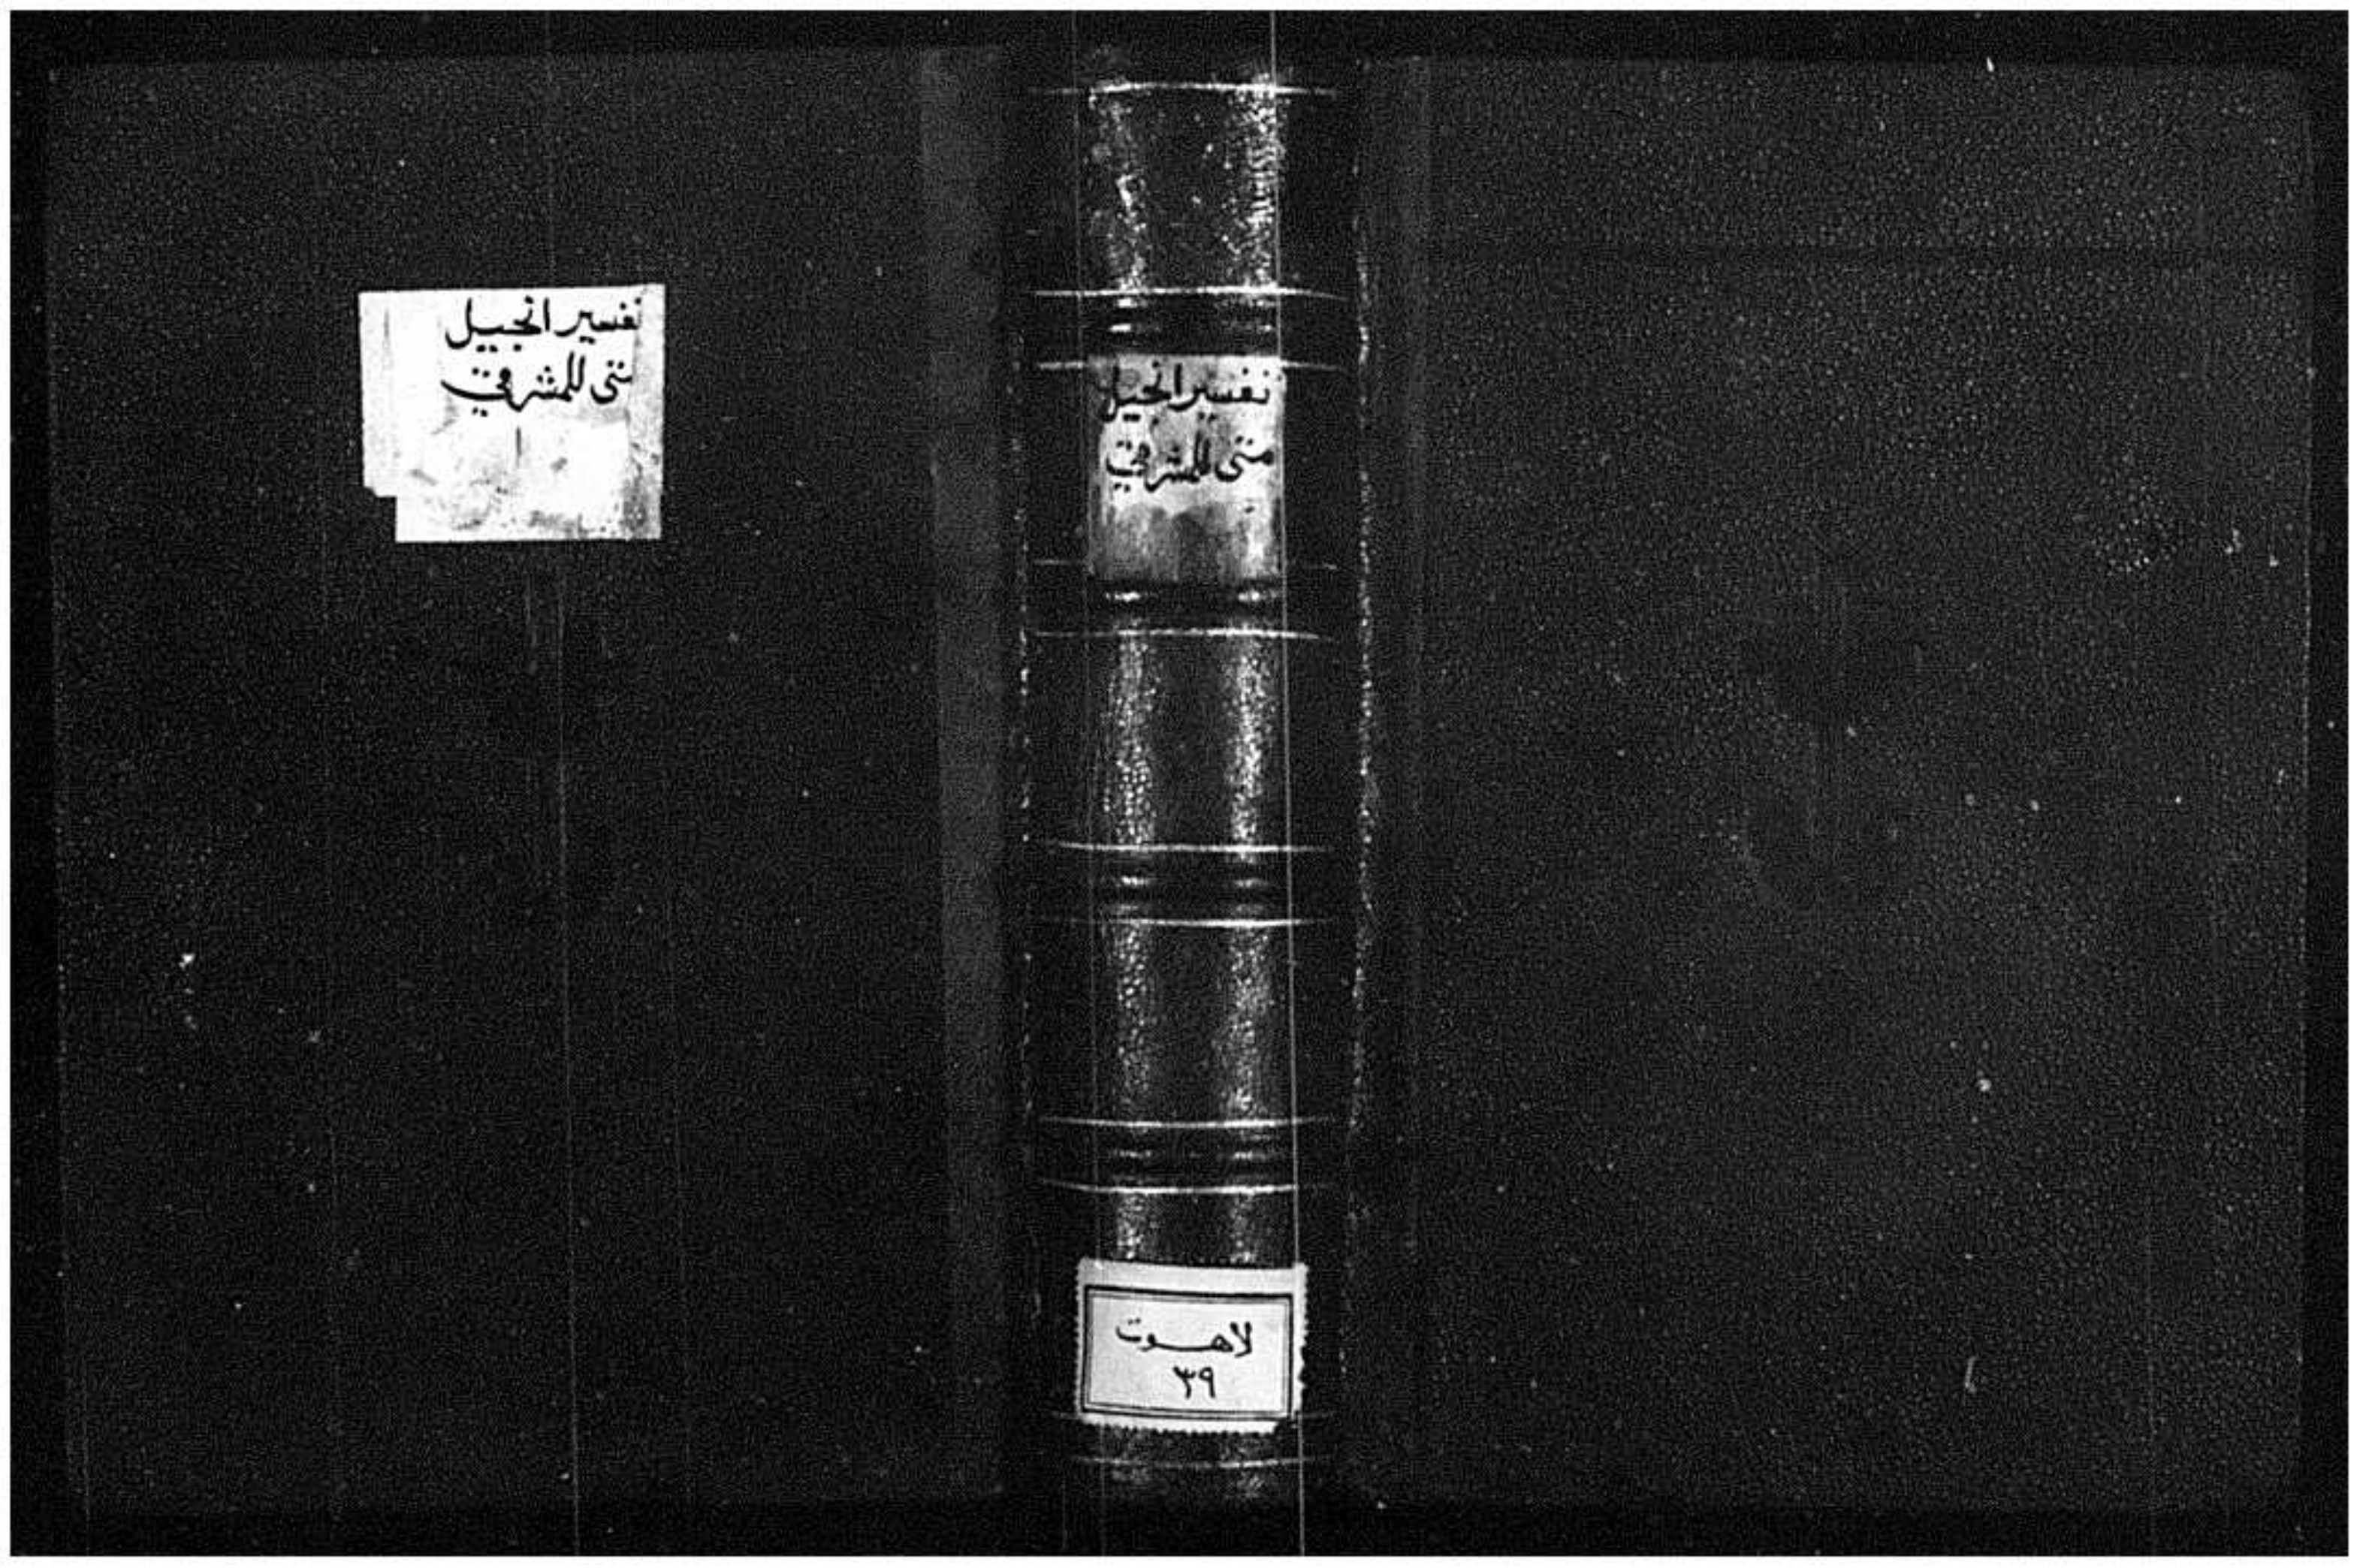 تفسير انجيل
متى للمشرقي
تفسير انجيل
متى للمشرقي
لاهوت
٣٩